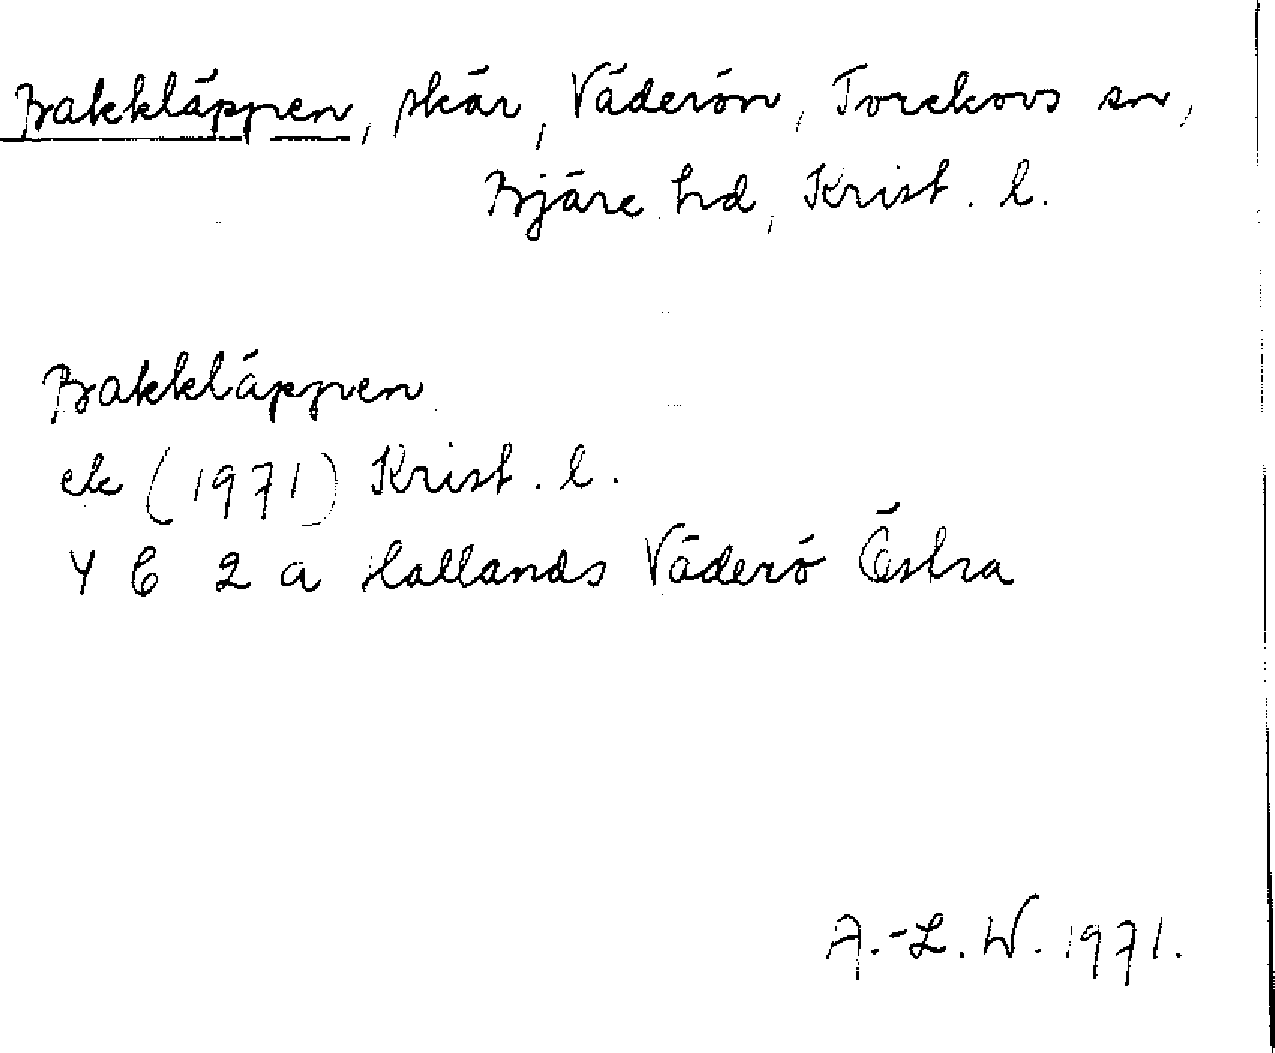 Bakkläppen, skär, Väderön, Torekovs sn,
Bjäre hd, Krist. l.
Bakkläppen
ek (1971) Krist. l.
4 C 2 a Hallands Väderö Östra
A.-L. W. 1971.